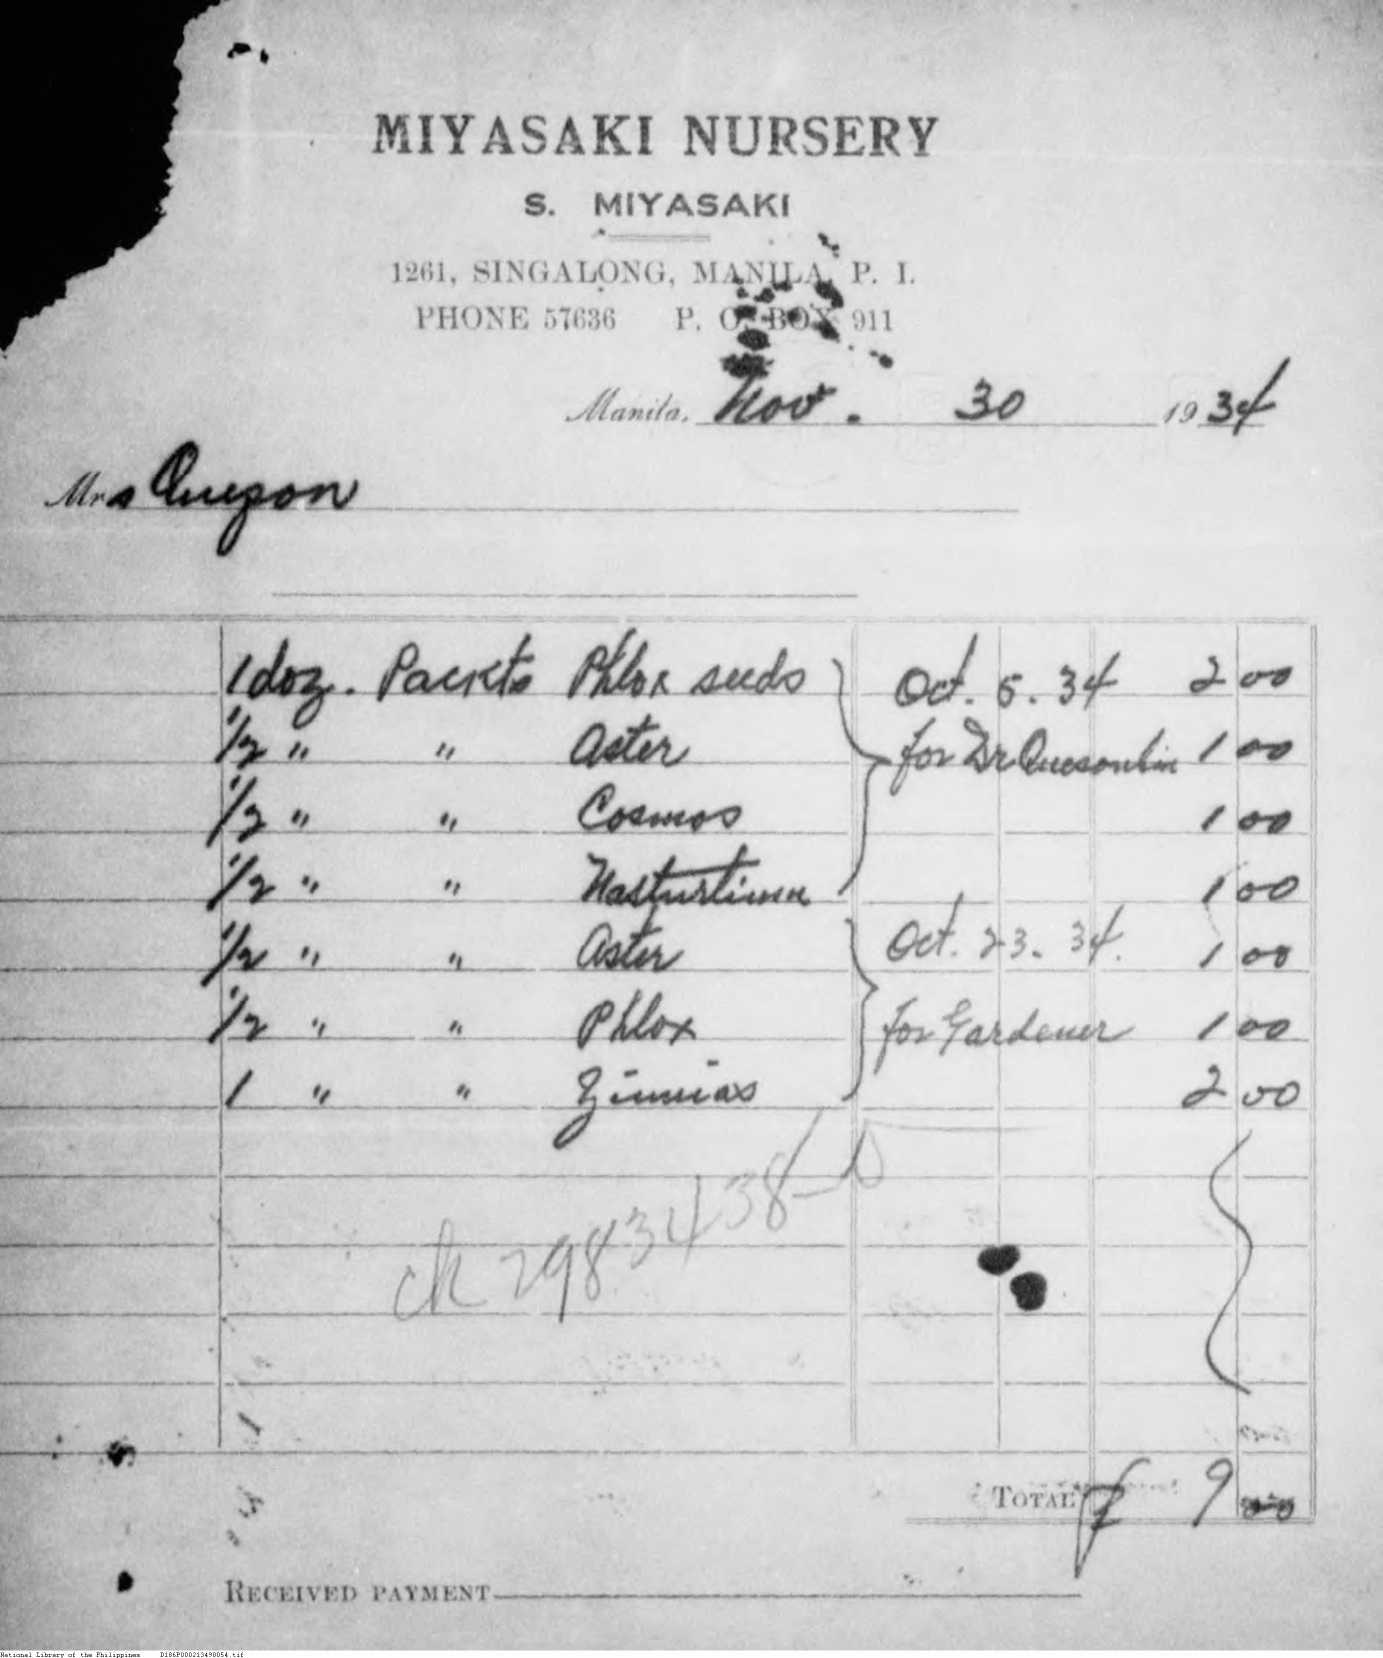 MIYASAKI NURSERY
S. MIYASAKI
1261, SINGALONG, MANILA, P. I.
PHONE 57636 P. O. BOX 911
Manila, Nov. 30 1934
Mrs Quezon
1 doz. Packts Phlox seeds Oct. 5. 34 2 00
1/2 " " Aster for Dr 1 00
1/2 " " Cosmos 1 00
1/2 " " Nasturtium 1 00
1/2 " " Aster Oct. 23. 34. 1 00
1/2 " " Phlox for Gardener 1 00
1 " " Zinnias 2 00
ck 2983438-D
TOTAL ₱ 9 00
RECEIVED PAYMENT
National Library of the Philippines D186P000213498054.tif